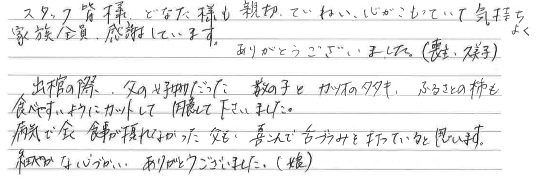 スタッフ皆様、どなた様も親切、ていねい、心がこもっていて気持ちよく
家族全員、感謝しています。
ありがとうございました。(喪主・久美子)
出棺の際、父の好物だった 数の子とカツオのタタキ、ふるさとの柿も
食べやすいようにカットして用意して下さいました。
病気で全く食事が摂れなかった父も、喜んで舌づつみを打っていると思います。
細やかな心づかい ありがとうございました。(娘)